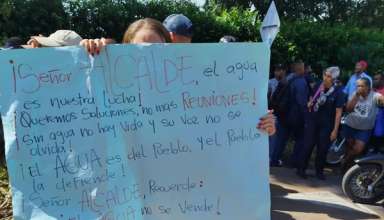 ¡Señor ALCALDE, el agua
es nuestra lucha!
¡Queremos soluciones, no mas REUNIONES!
¡Sin agua no hay Vida y su Voz no se
olvida!
¡El AGUA es del Pueblo, y el Pueblo
la defiende!
¡Señor ALCALDE, Recuerde:
AGUA no se Vende!